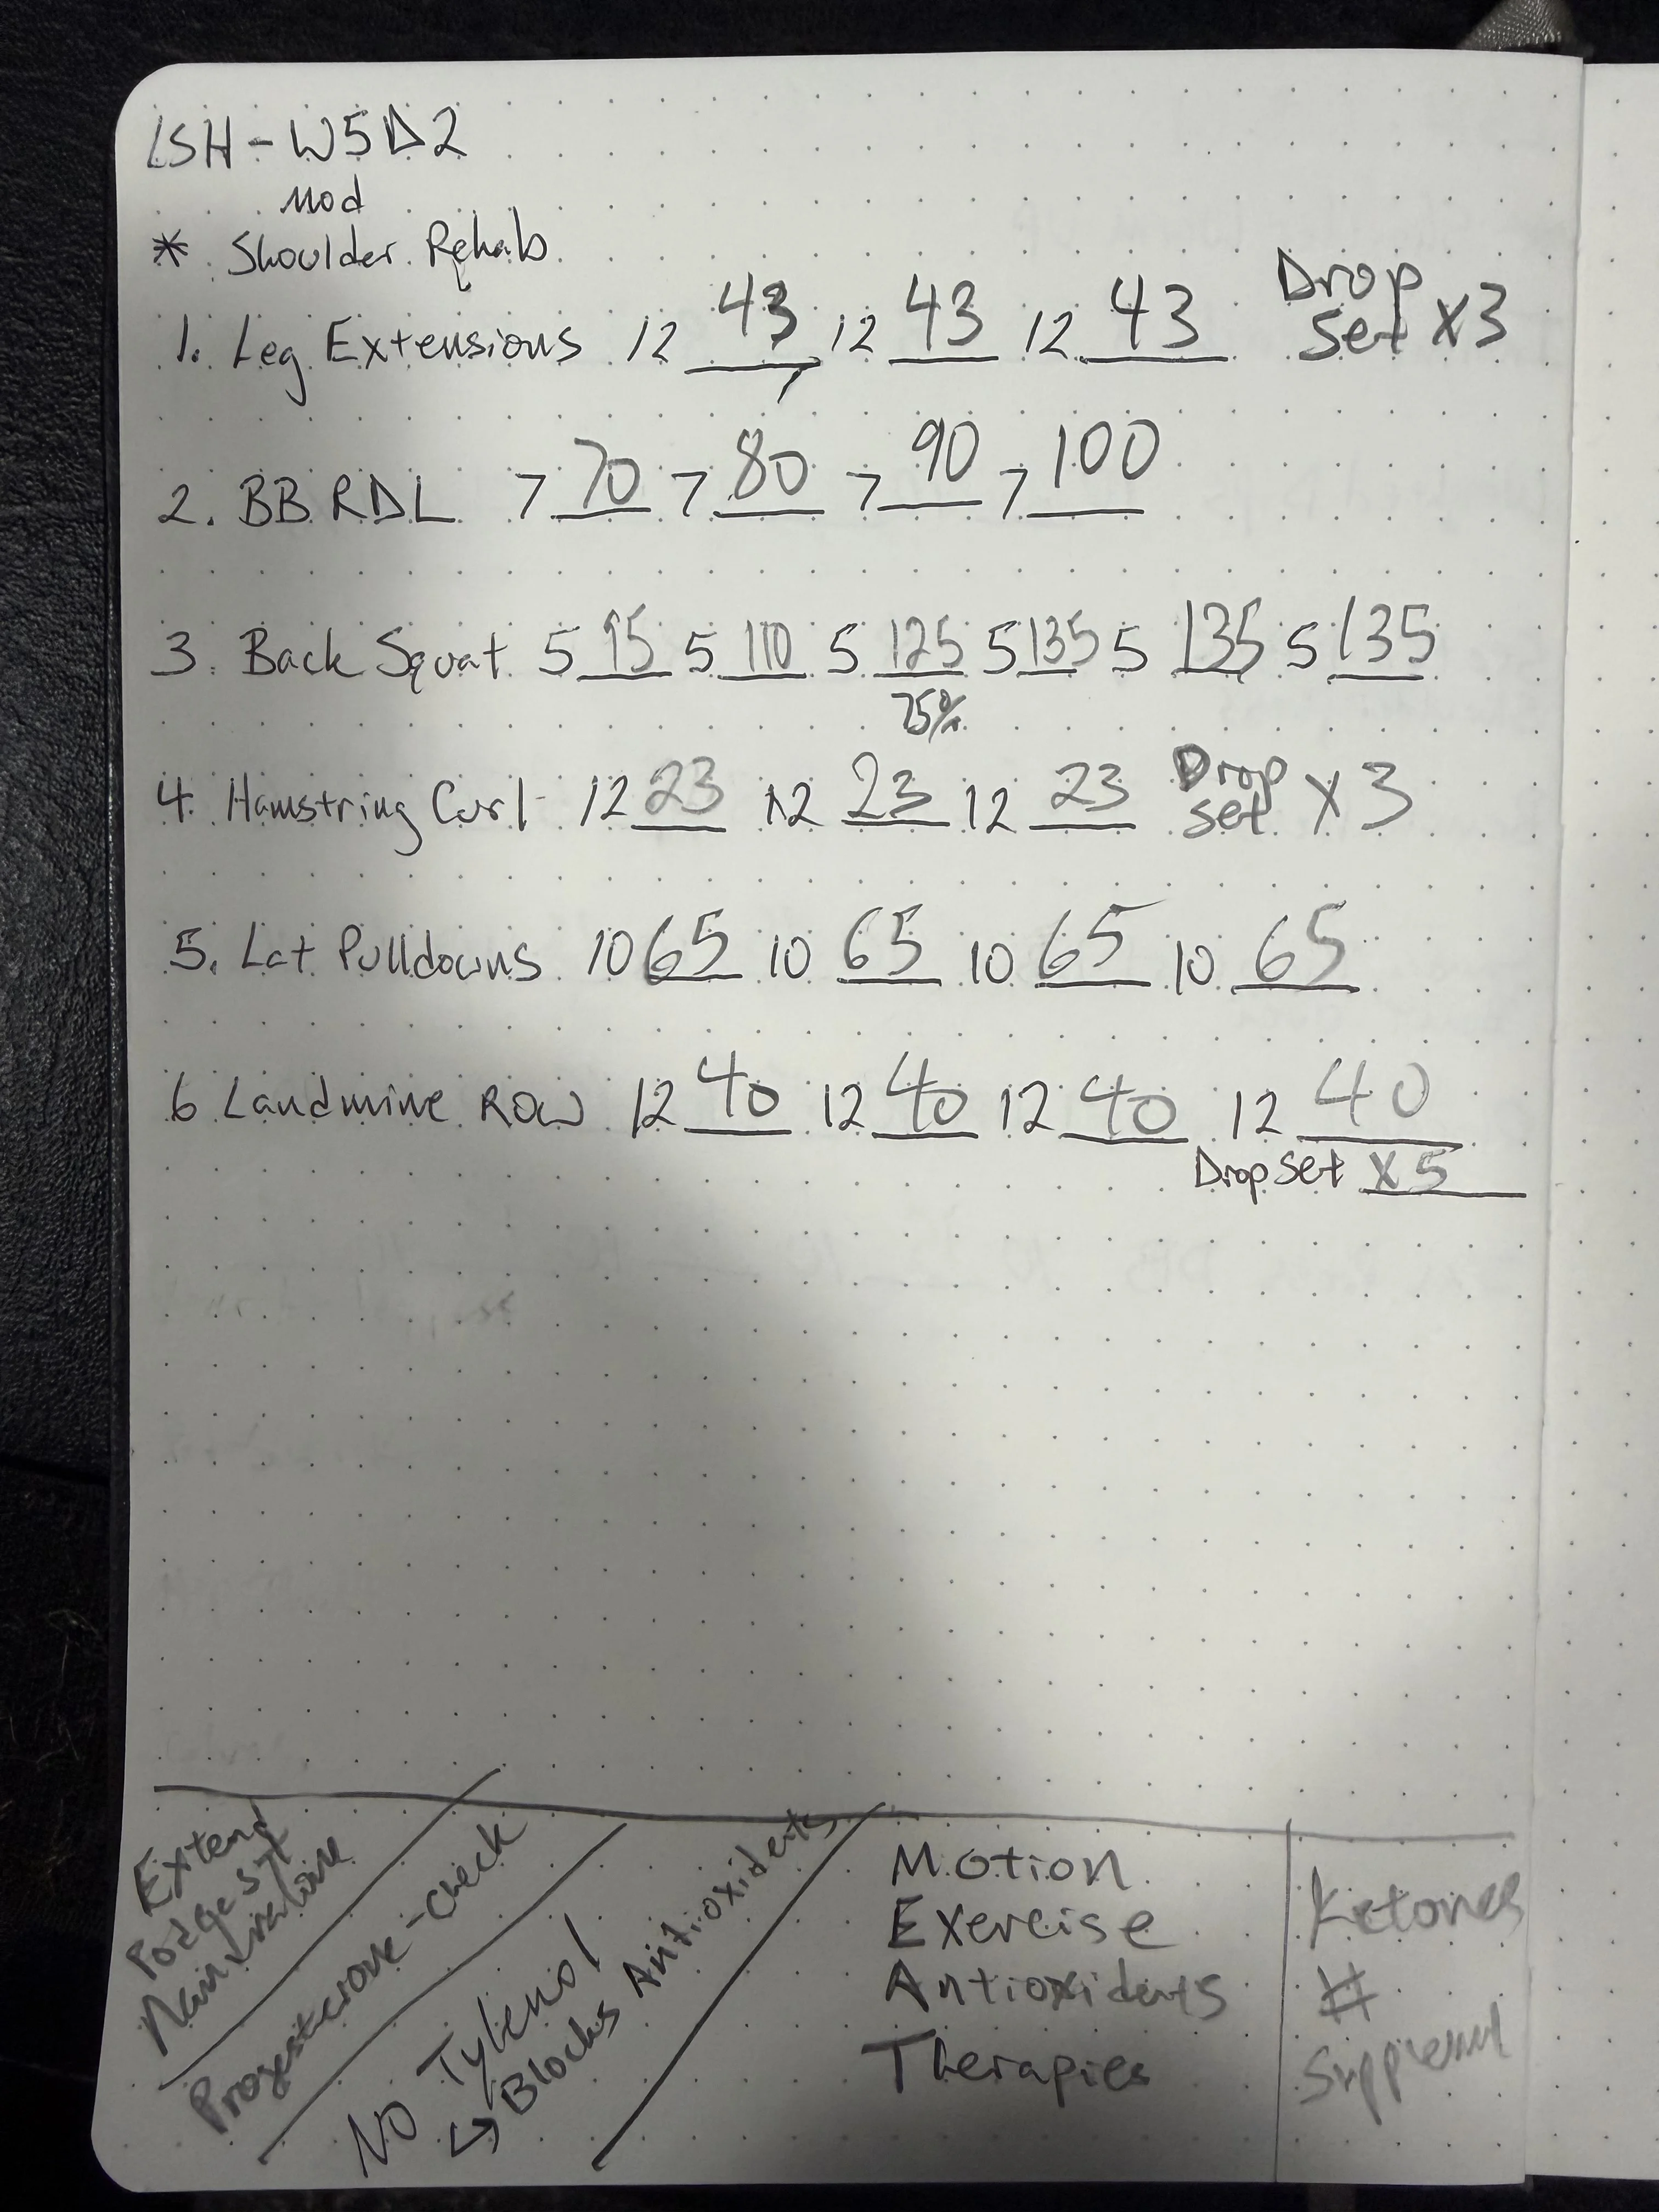 LSH - W5D2
Mod
* Shoulder Rehab
1. Leg Extensions 12 43, 12 43 12 43 Drop Set X3
2. BB RDL 7 70 7 80 7 90 7 100
3. Back Squat 5 95 5 110 5 125 5 135 5 135 5 135
75%
4. Hamstring Curl 12 23 12 23 12 23 Drop Set X 3
5. Lat Pulldowns 10 65 10 65 10 65 10 65
6 Landmine Row 12 40 12 40 12 40 12 40
Drop Set X 5
Extend
Progesterone-check
No Tylenol
↳ Blocks Antioxidents
Motion
Exercise
Antioxidents
Therapies
Ketones
#